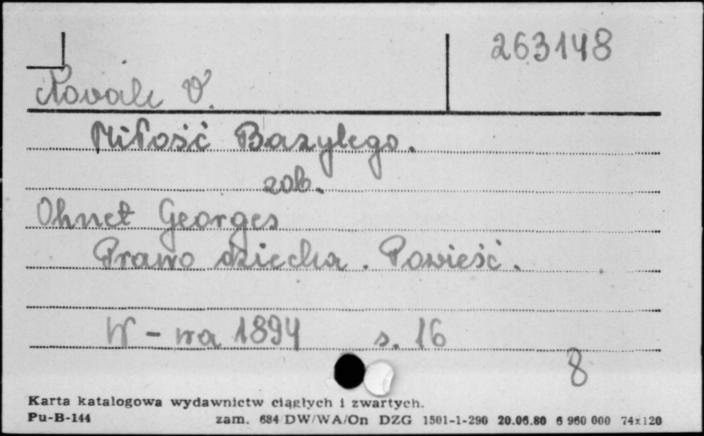 263148
Novak V.
Miłość Bazylego.
zob.
Ohnet Georges
Prawo dziecka. Powieść.
W-wa 1894 s. 16
8
Karta katalogowa wydawnictw ciągłych i zwartych.
Pu-B-144 zam. 684 DW/WA/On DZG 1501-1-290 20.06.80 6 960 000 74x120